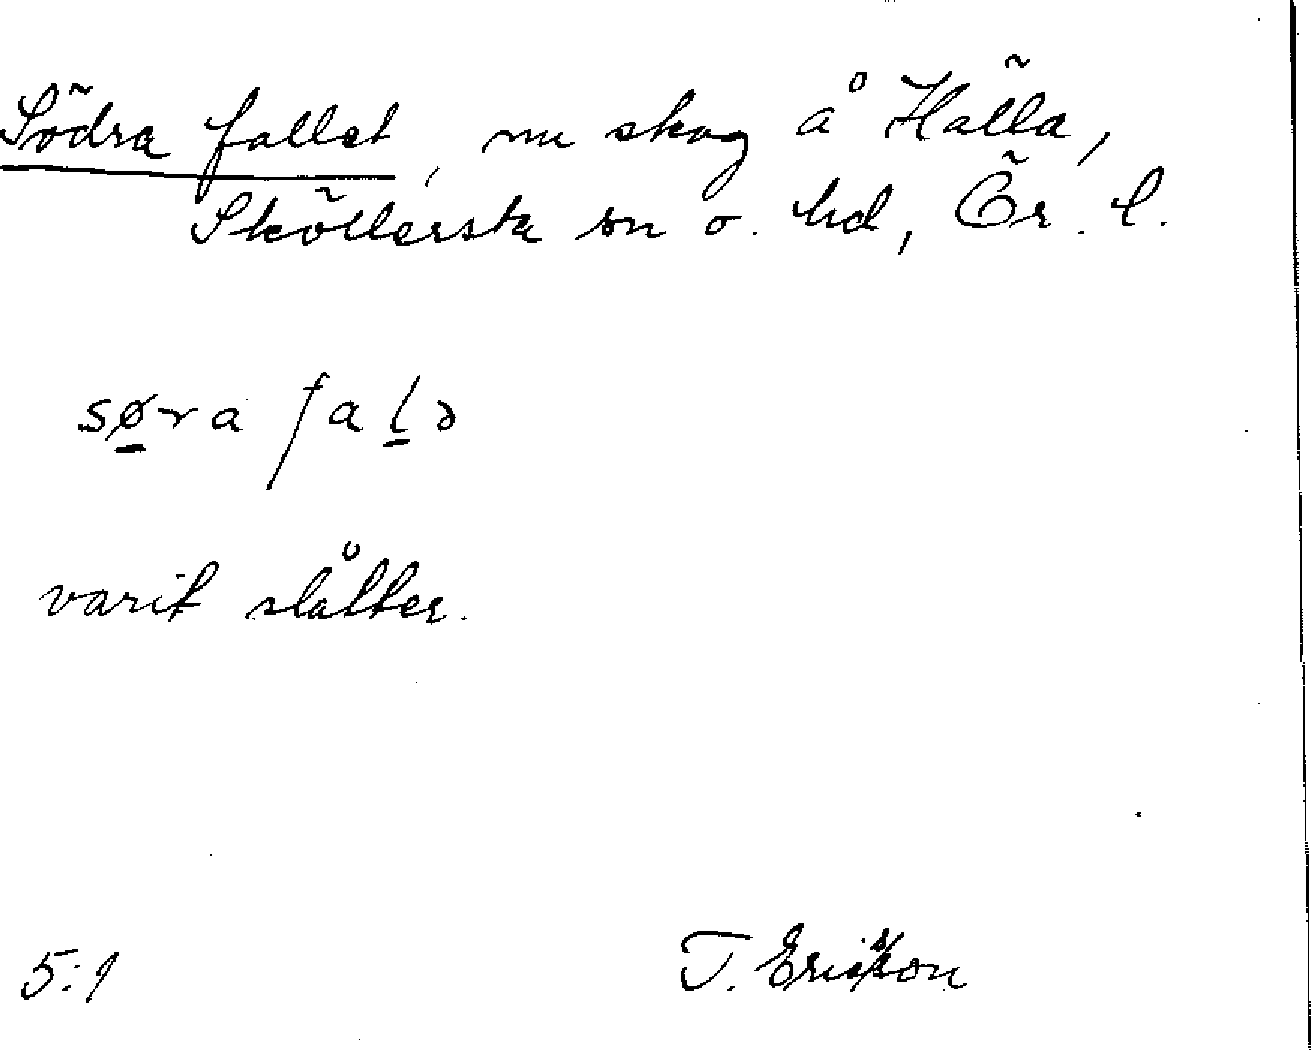 Södra fallet, nu skog å Hälla,
Sköllersta sn o. hd, Ör. l.
søra falə
varit slåtter.
5:1
T. Ericsson